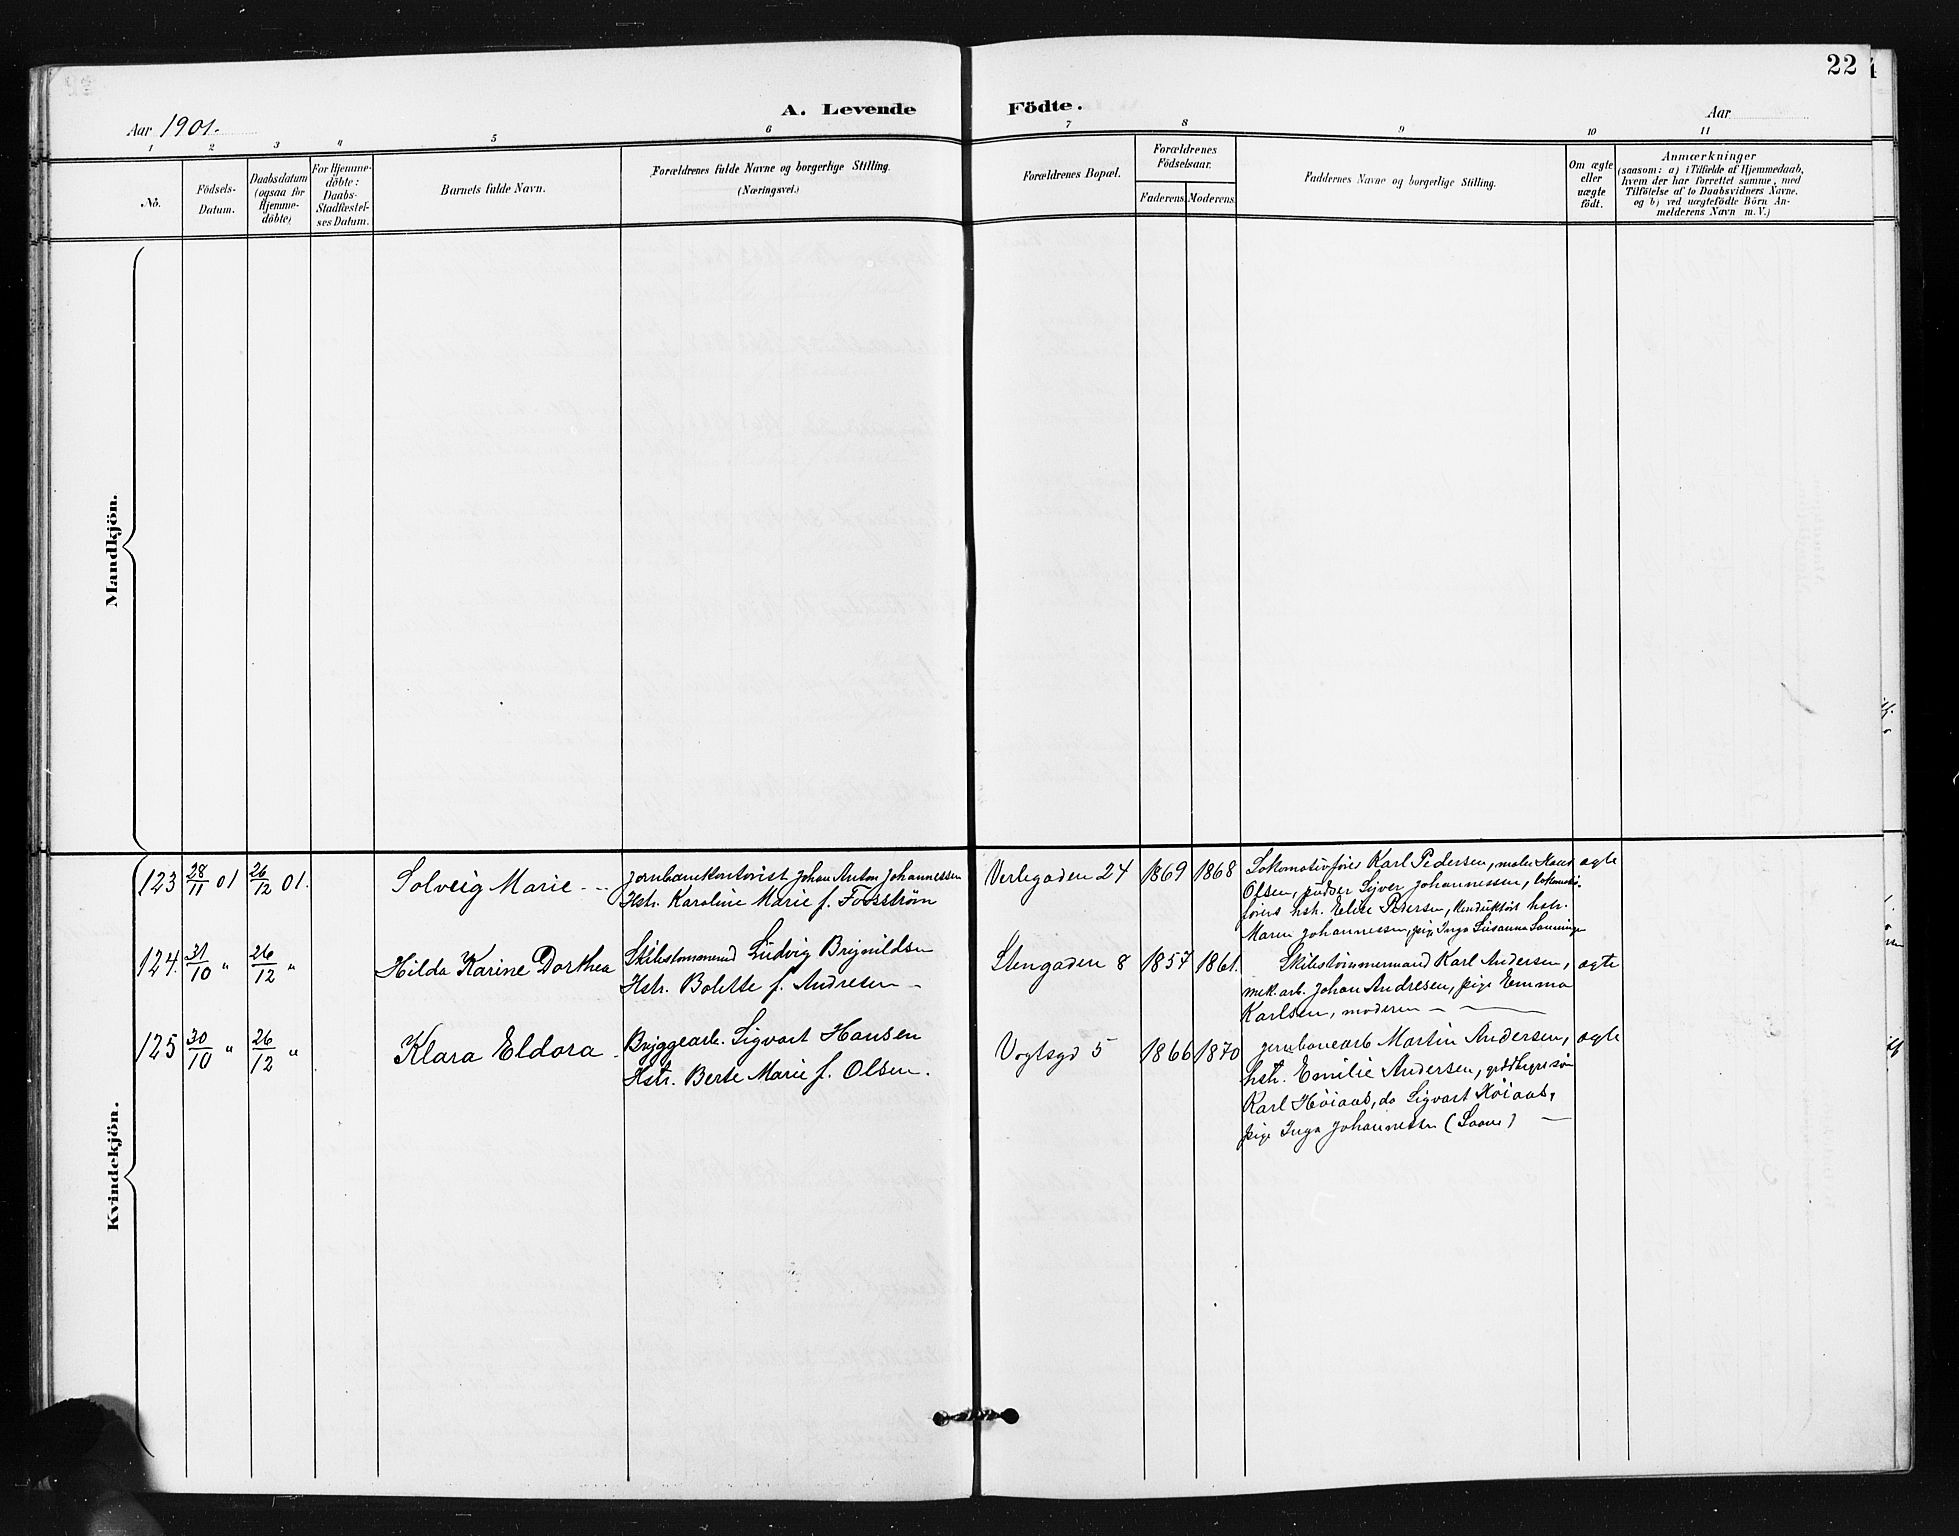 22
A. Levende Födte.
Aar 1901.
Aar
1 2 3 4 5 6 7 8 9 10 11
No.
Födsels-
Datum.
Daabsdatum
(ogsaa for
Hjemme-
döbte)
For Hjemme-
döbte:
Daabs-
Stadfæstel-
ses Datum.
Barnets fulde Navn.
Forældrenes fulde Navne og borgerlige Stilling.
(Næringsvei.)
Forældrenes Bopæl.
Forældrenes
Födselsaar.
Faderens. Moderens.
Faddernes Navne og borgerlige Stilling.
Om ægte
eller
uægte
födt.
Anmærkninger
(saasom: a) i Tilfælde af Hjemmedaab,
hvem der har forrettet samme, med
Tilföielse af to Daabsvidners Navne.
og b) ved uægtefödte Börn An-
melderens Navn m. V.)
Mandkjön.
Kvindekjön.
123 28/11 01 26/12 01. Solveig Marie
Jernbanekontorist Johan Anton Johannessen
Hstr. Karoline Marie f. Fosström
Verlegaden 24 1869 1868
Lokomotivfører Karl Pedersen, maler
Olsen, pudser Sjver Johannessen,
Elise Petersen, hstr.
Maren Johannessen, pige Inga Susanna
ægte
124. 31/10 " 26/12 " Hilda Karine Dorthea
Skibstømmermd Ludvig Brynildsen
Hstr. Bolette f. Andresen
Stengaden 8 1857 1861.
Skibstømmermand Karl Andersen,
mek. arb. Johan Andresen, pige Emma
Karlsen, moderen
ægte
125 30/10 " 26/12 " Klara Eldora
Bryggearb. Sigvart Hansen
Hstr. Berte Marie f. Olsen.
Vogtsgd 5 1866 1870
jernbanearb Martin Andersen,
hstr. Emilie Andersen,
Karl Høiaas, do Sigvart Høiaas,
pige Inga Johannessen
ægte